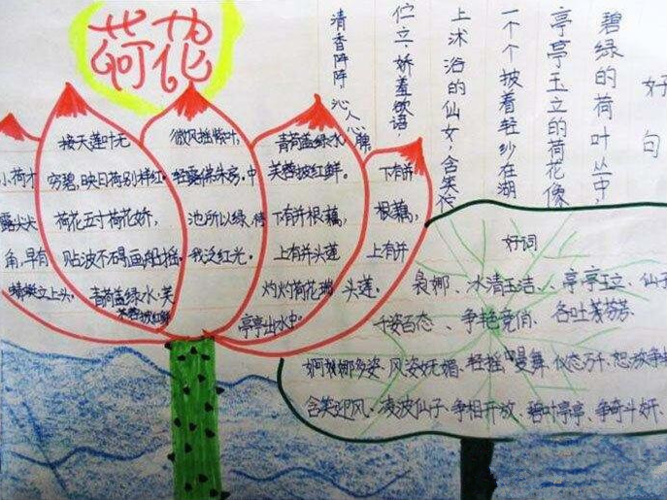 荷花
小荷才
露尖尖
角,早有
蜻蜓立上头。
接天莲叶无
穷碧,映日荷别样红。
荷花五寸荷花娇,
贴波不碍画船摇。
青荷盖绿水,芙
蓉披红鲜
微风摇紫叶,
轻露拂朱房。中
池所以绿,待
我泛红光。
青荷盖绿水
芙蓉披红鲜。
下有并根藕,
上有并头莲
灼灼荷花瑞,
亭亭出水中。
下有并
根藕,
上有并
头莲。
好句
碧绿的荷叶丛中,
亭亭玉立的荷花像
一个个披着轻纱在湖
上沐浴的仙女,含笑伫
伫立,娇羞欲语
清香阵阵 沁人心脾
好词
袅娜、冰清玉洁、亭亭玉立、仙
千姿百态、争艳竞俏、各吐芬芳、
婀娜多姿、风姿妩媚、轻摇曼舞、仪态万千、怒放争
含笑迎风、凌波仙子、争相开放、碧叶亭亭、争奇斗妍